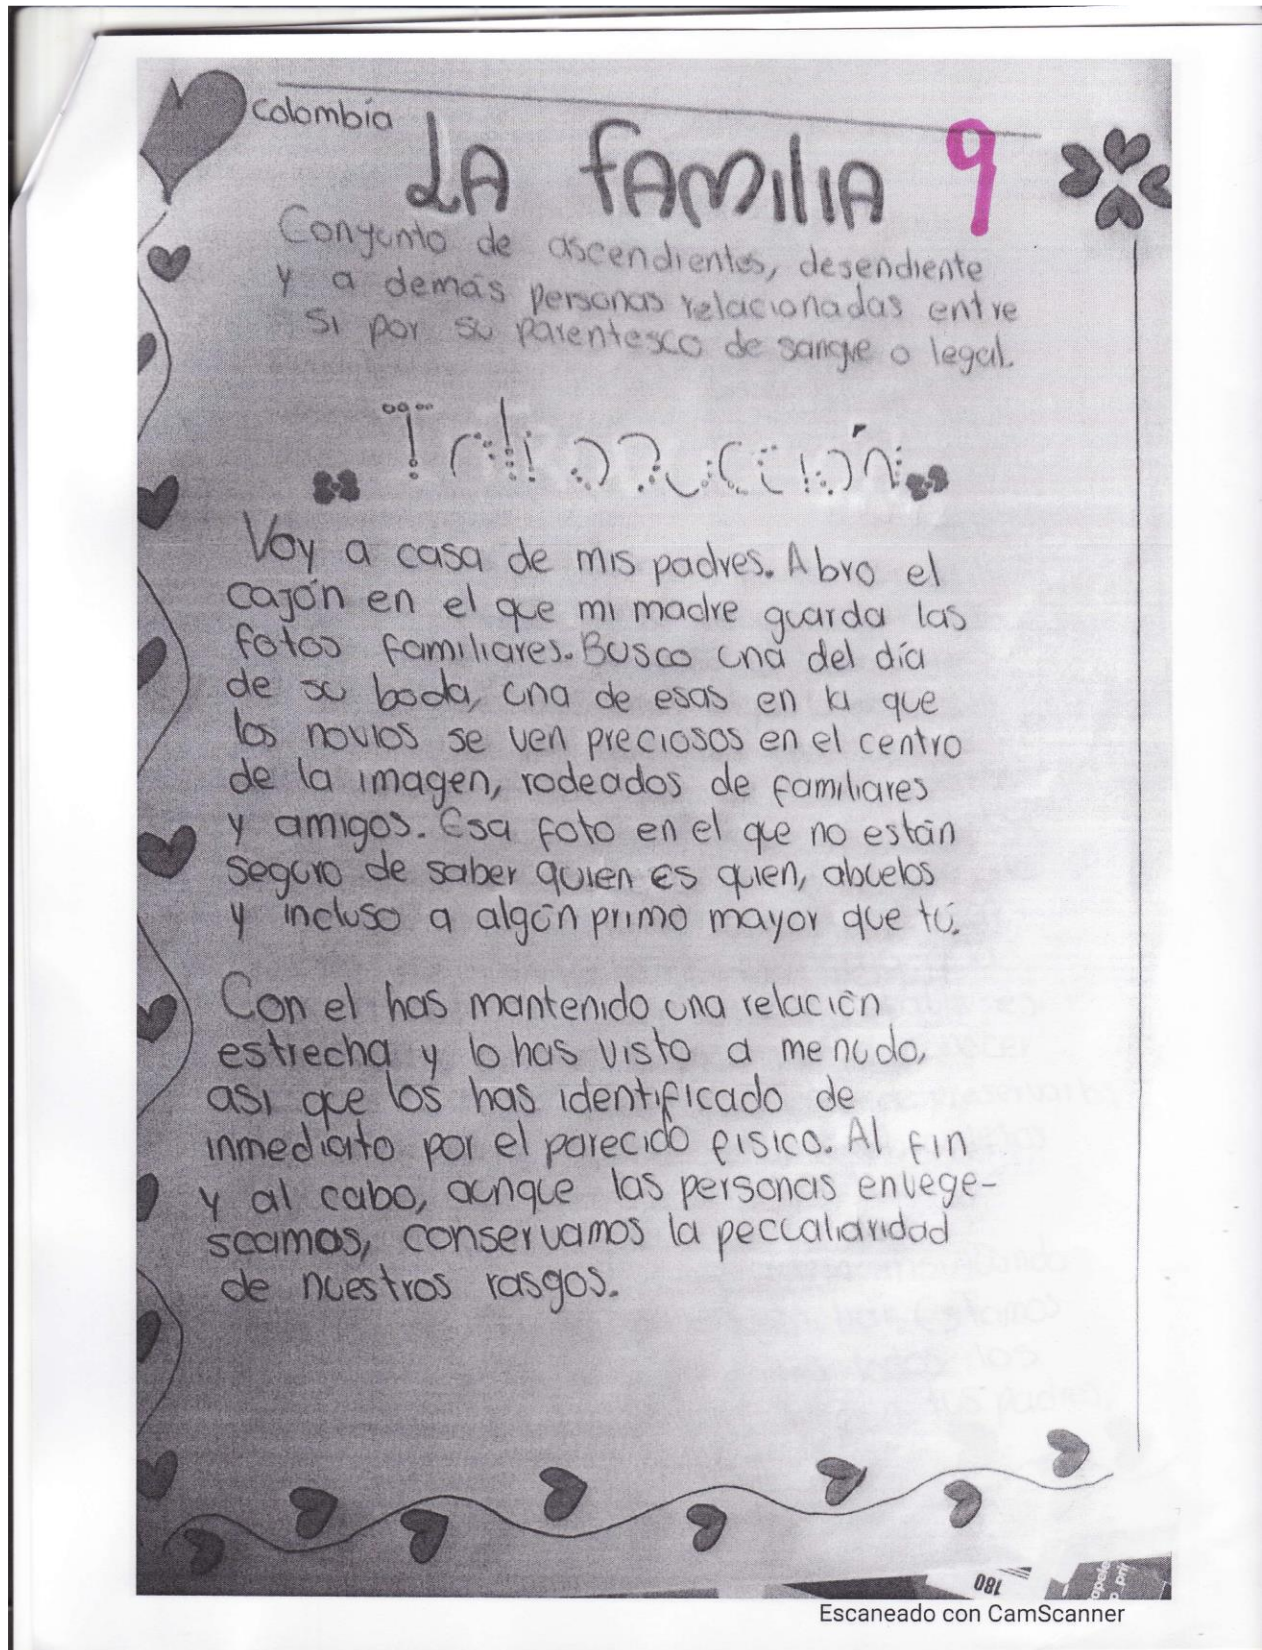 Colombia
LA FAMILIA 9
Conyunto de ascendientes, desendiente
y a demás personas relacionadas entre
si por su parentesco de sangre o legal.
Introducción
Voy a casa de mis padres. Abro el
cajón en el que mi madre guarda las
fotos familiares. Busco una del día
de su boda, una de esas en la que
los novios se ven preciosos en el centro
de la imagen, rodeados de familiares
y amigos. Esa foto en el que no están
seguro de saber quien es quien, abuelos
y incluso a algún primo mayor que tú.
Con el has mantenido una relación
estrecha y lo has visto a menudo,
asi que los has identificado de
inmediato por el parecido fisico. Al fin
y al cabo, aunque las personas envege-
scamos, conservamos la peculiaridad
de nuestros rasgos.
180
Escaneado con CamScanner